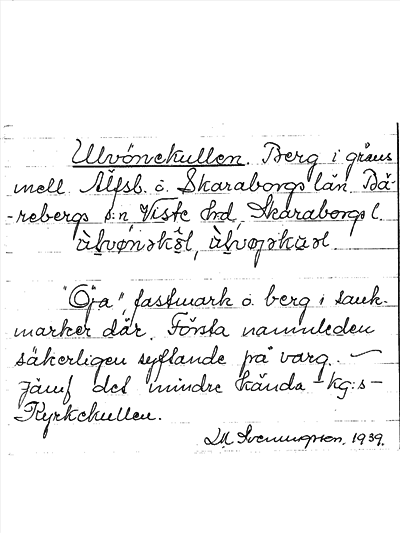 Ulvönekullen. Berg i gräns
mell. Älfsb. o. Skaraborgs län, Bä-
-rebergs s:n Viste hrd, Skaraborgs l.
"Öja", fastmark o. berg i sank-
marker där. Första namnleden
säkerligen syftande på varg. –
Jämf det mindre kända – kg:s –
Kyrkekullen.
1939.